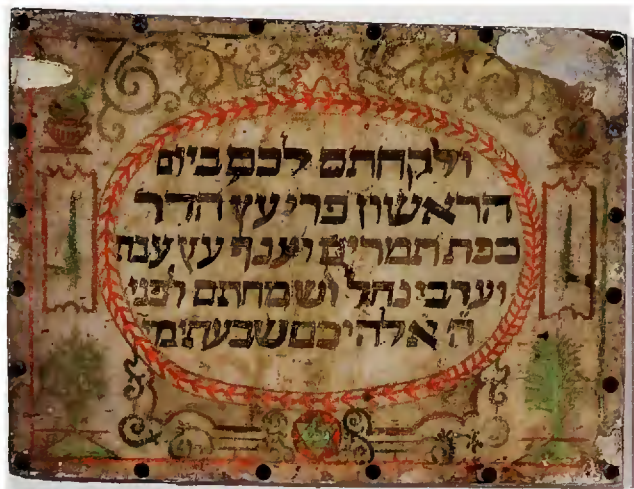 ולקחתם לכם ביום
הראשון פרי עץ הדר
כפת תמרים וענף עץ עבת
וערבי נחל ושמחתם לפני
ה אלהיכם שבעת ימי